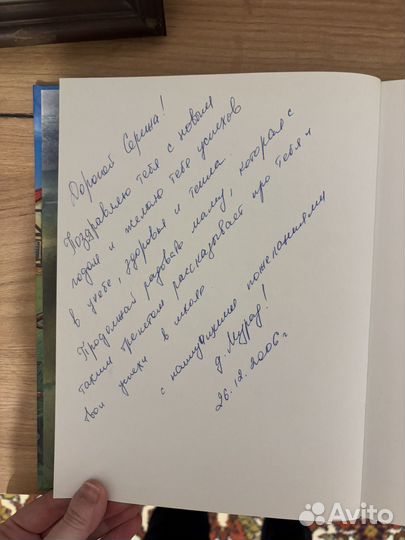 Дорогой Сережа!
Поздравляю тебя с новым
годом и желаю тебе успехов
в учебе, здоровья и тепла
Продолжай радовать маму, которая с
таким трепетом рассказывает про тебя и
твои успехи в школе
с наилучшими пожеланиями
д. Мурад!
26.12.2006 г
Avito